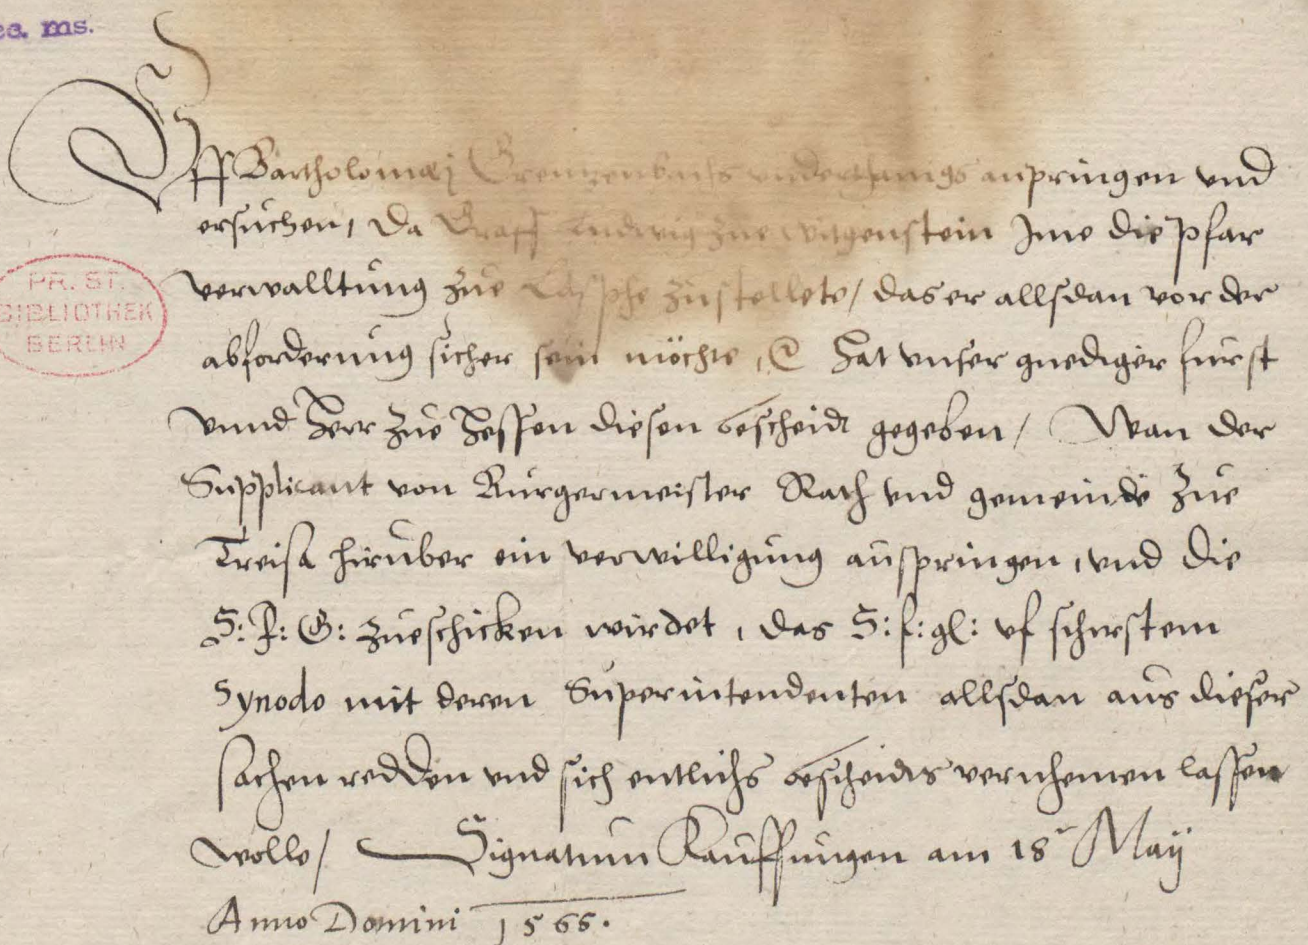 cc. ms.
Vff Bartholomæj Creutzenbachs underthenigs anpringen vnd
ersuchen, Da Graff Ludwig zue Witgenstein Ime die Pfar
verwalltung zue Lasphe zustellete, das er allsdan vor der
PR. ST.
BIBLIOTHEK
BERLIN
abforderung sicher sein möchte, Hat vnser gnediger furst
vnnd Herr zue Hessen diesen bescheidt gegeben, Wan der
Supplicant von Burgermeister Rath vnd gemeinde zue
Treisa hirüber ein verwilligung auspringen, vnd die
S: F: G: zueschicken wirdet, das S: f: gl: vf schirstem
Synodo mit deren Superintendenten allsdan aus dieser
sachen redden vnd sich entlichs bescheidts vernehmen lassen
wolle, Signatum Kauffungen am 18 May
Anno Domini 1566.